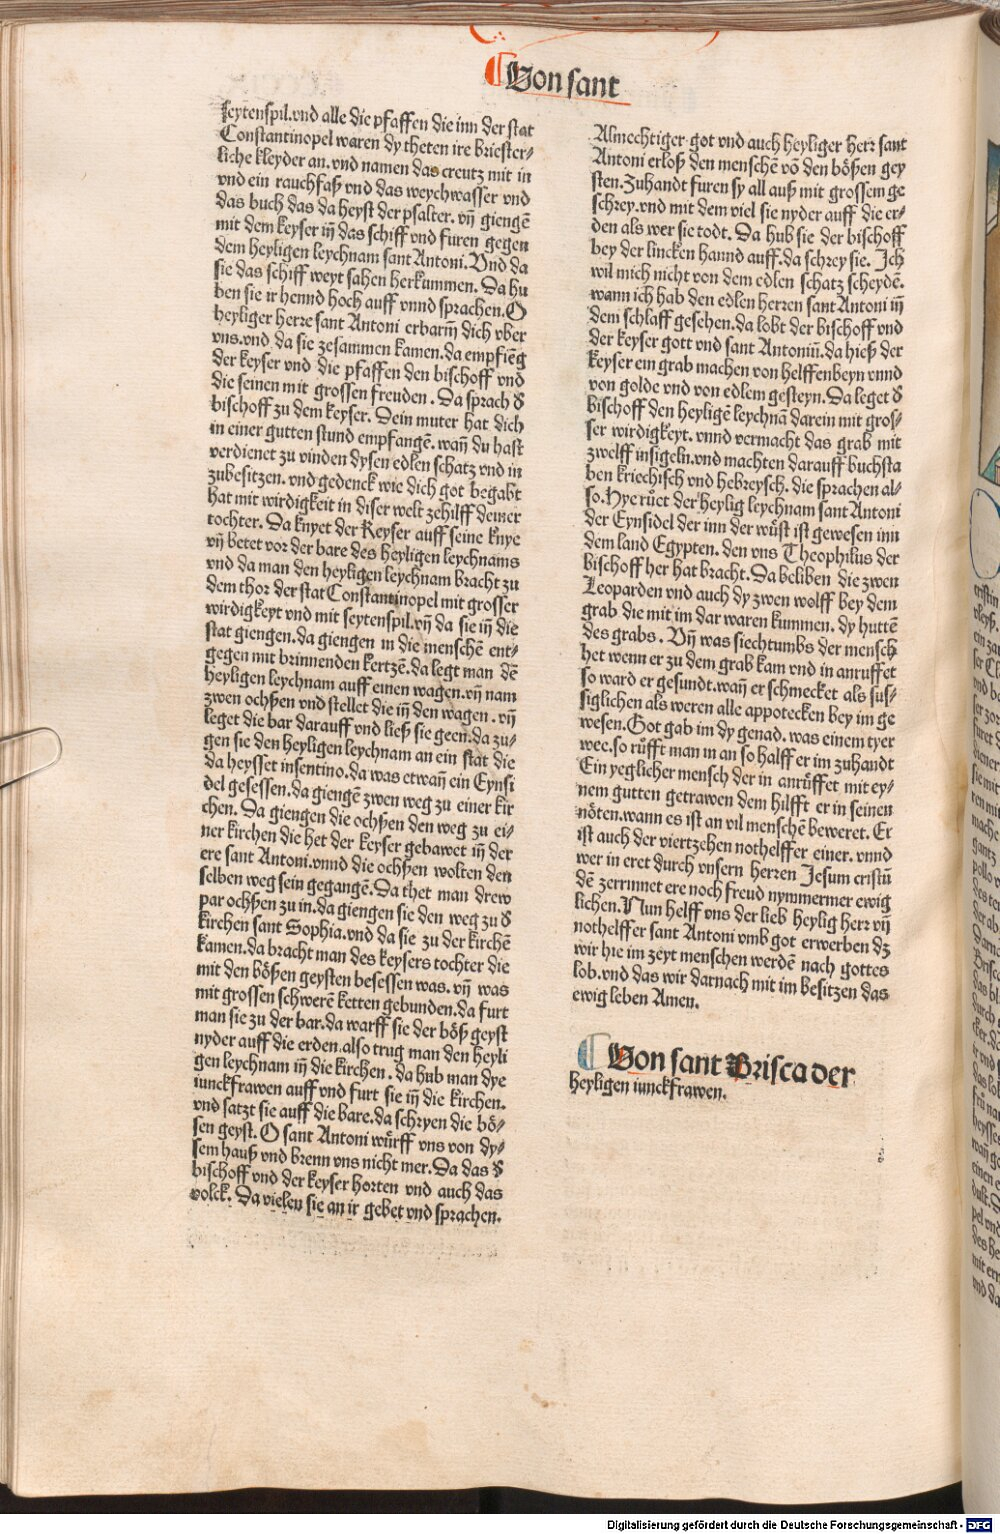 Von sant
seytenspil.vnd alle die pfaffen die inn der stat
Constantinopel waren dy theten ire briester⸗
liche kleyder an.vnd namen das creutz mit in
vnd ein rauchfaß vnd das weychwasser vnd
das buch das da heyst der psalter. vñ giengē
mit dem keyser iñ das schiff vnd furen gegen
dem heyligen leychnam sant Antoni.Vnd da
sie das schiff weyt sahen herkummen. Da hu
ben sie ir hennd hoch auff vnnd sprachen.O
heyliger herre sant Antoni erbarm̄ dich vber
vns.vnd da sie zesammen kamen.da empfieḡ
der keyser vnd die pfaffen den bischoff vnd
die seinen mit grossen freuden. Da sprach d̕
bischoff zu dem keyser. Dein muter hat dich
in einer gutten stund empfangē. wañ du hast
verdienet zu vinden dysen edlen schatz vnd in
zubesitzen. vnd gedenck wie dich got begabt
hat mit wirdigkeit in diser welt zehilff deiner
tochter. Da knyet der Keyser auff seine knye
vñ betet vor der bare des heyligen leychnams
vnd da man den heyligen leychnam bracht zu
dem thor der stat Constantinopel mit grosser
wirdigkeyt vnd mit seytenspil.vñ da sie iñ die
stat giengen.da giengen in die menschē ent⸗
gegen mit brinnenden kertzē.da legt man dē
heyligen leychnam auff einen wagen.vñ nam
zwen ochßen vnd stellet die iñ den wagen. vñ
leget die bar darauff vnd ließ sie geen.da zu⸗
gen sie den heyligen leychnam an ein stat die
da heysset insentino.da was etwañ ein Eynsi
del gesessen.da giengē zwen weg zu einer kir
chen. Da giengen die ochßen den weg zu ei⸗
ner kirchen die het der keyser gebawet iñ der
ere sant Antoni.vnnd die ochßen wolten den
selben weg sein gegangē.Da thet man drew
par ochßen zu in.da giengen sie den weg zu d̕
kirchen sant Sophia.vnd da sie zu der kirchē
kamen.da bracht man des keysers tochter die
mit den bößen geysten besessen was. vñ was
mit grossen schwerē ketten gebunden.da furt
man sie zu der bar.da warff sie der böß geyst
nyder auff die erden.also trug man den heyli
gen leychnam iñ die kirchen. da hub man dye
iunckfrawen auff vnd furt sie iñ die kirchen.
vnd satzt sie auff die bare.da schryen die bö⸗
sen geyst. O sant Antoni wůrff vns von dy⸗
sem hauß vnd brenn vns nicht mer. Da das d̕
bischoff vnd der keyser horten vnd auch das
volck. Da vielen sie an ir gebet vnd sprachen.
Almechtiger got vnd auch heyliger herr sant
Antoni erloß den menschē vō den bößen gey
sten.Zuhandt furen sy all auß mit grossem ge
schrey.vnd mit dem viel sie nyder auff die er⸗
den als wer sie todt. Da hub sie der bischoff
bey der lincken hannd auff.da schrey sie. Ich
wil mich nicht von dem edlen schatz scheydē.
wann ich hab den edlen herren sant Antoni iñ
dem schlaff gesehen.da lobt der bischoff vnd
der keyser gott vnd sant Antoniū.da hieß der
keyser ein grab machen von helffenbeyn vnnd
von golde vnd von edlem gesteyn.Da leget d̕
bischoff den heyligē leychnā darein mit gros⸗
ser wirdigkeyt. vnnd vermacht das grab mit
zwelff insigeln.vnd machten darauff buchsta
ben kriechisch vnd hebreysch. die sprachen al⸗
so.Hye růet der heylig leychnam sant Antoni
der Eynsidel der inn der wůst ist gewesen inn
dem land Egypten. den vns Theophilus der
bischoff her hat bracht. Da beliben die zwen
Leoparden vnd auch dy zwen wolff bey dem
grab die mit im dar waren kummen. dy huttē
des grabs. Vñ was siechtumbs der mensch
het wenn er zu dem grab kam vnd in anruffet
so ward er gesundt.wañ er schmecket als süs⸗
siglichen als weren alle appotecken bey im ge
wesen.Got gab im dy genad. was einem tyer
wee.so růfft man in an so halff er im zuhandt
Ein yeglicher mensch der in anrůffet mit ey⸗
nem gutten getrawen dem hilfft er in seinen
nöten.wann es ist an vil menschē beweret. Er
ist auch der viertzehen nothelffer einer. vnnd
wer in eret durch vnsern herren Jesum cristū
dē zerrinnet ere noch freud nymmermer ewig
lichen.Nun helff vns der lieb heylig herr vñ
nothelffer sant Antoni vmb got erwerben dz
wir hie im zeyt menschen werdē nach gottes
lob.vnd das wir darnach mit im besitzen das
ewig leben Amen.
Von sant Brisca der
heyligen iunckfrawen.
Digitalisierung gefördert durch die Deutsche Forschungsgemeinschaft - DFG